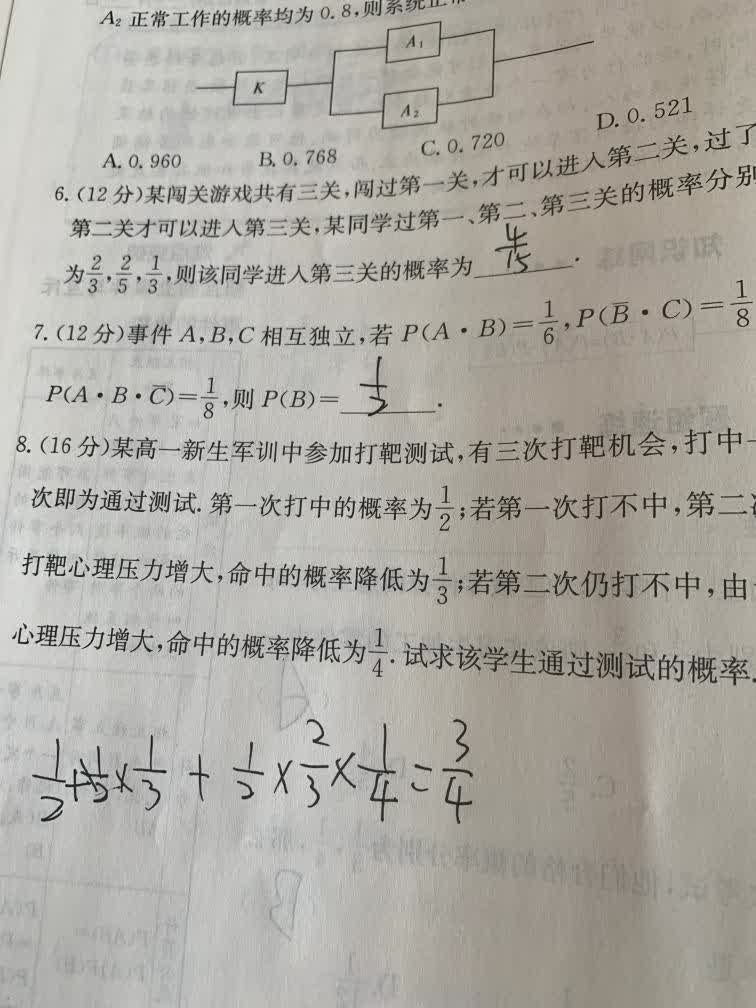 A₂ 正常工作的概率均为 0.8,则系统正常
K
A₁
A₂
A. 0. 960 B. 0. 768 C. 0. 720 D. 0. 521
6. (12 分)某闯关游戏共有三关,闯过第一关,才可以进入第二关,过了
第二关才可以进入第三关,某同学过第一、第二、第三关的概率分别
为2/3,2/5,1/3,则该同学进入第三关的概率为 4/15 .
7. (12 分)事件 A,B,C 相互独立,若 P(A·B)=1/6,P(B̄·C)=1/8
P(A·B·C̄)=1/8,则 P(B)= 1/2 .
8. (16 分)某高一新生军训中参加打靶测试,有三次打靶机会,打中一
次即为通过测试. 第一次打中的概率为1/2;若第一次打不中,第二次
打靶心理压力增大,命中的概率降低为1/3;若第二次仍打不中,由
心理压力增大,命中的概率降低为1/4. 试求该学生通过测试的概率.
1/2+1/2×1/3 + 1/2×2/3×1/4=3/4